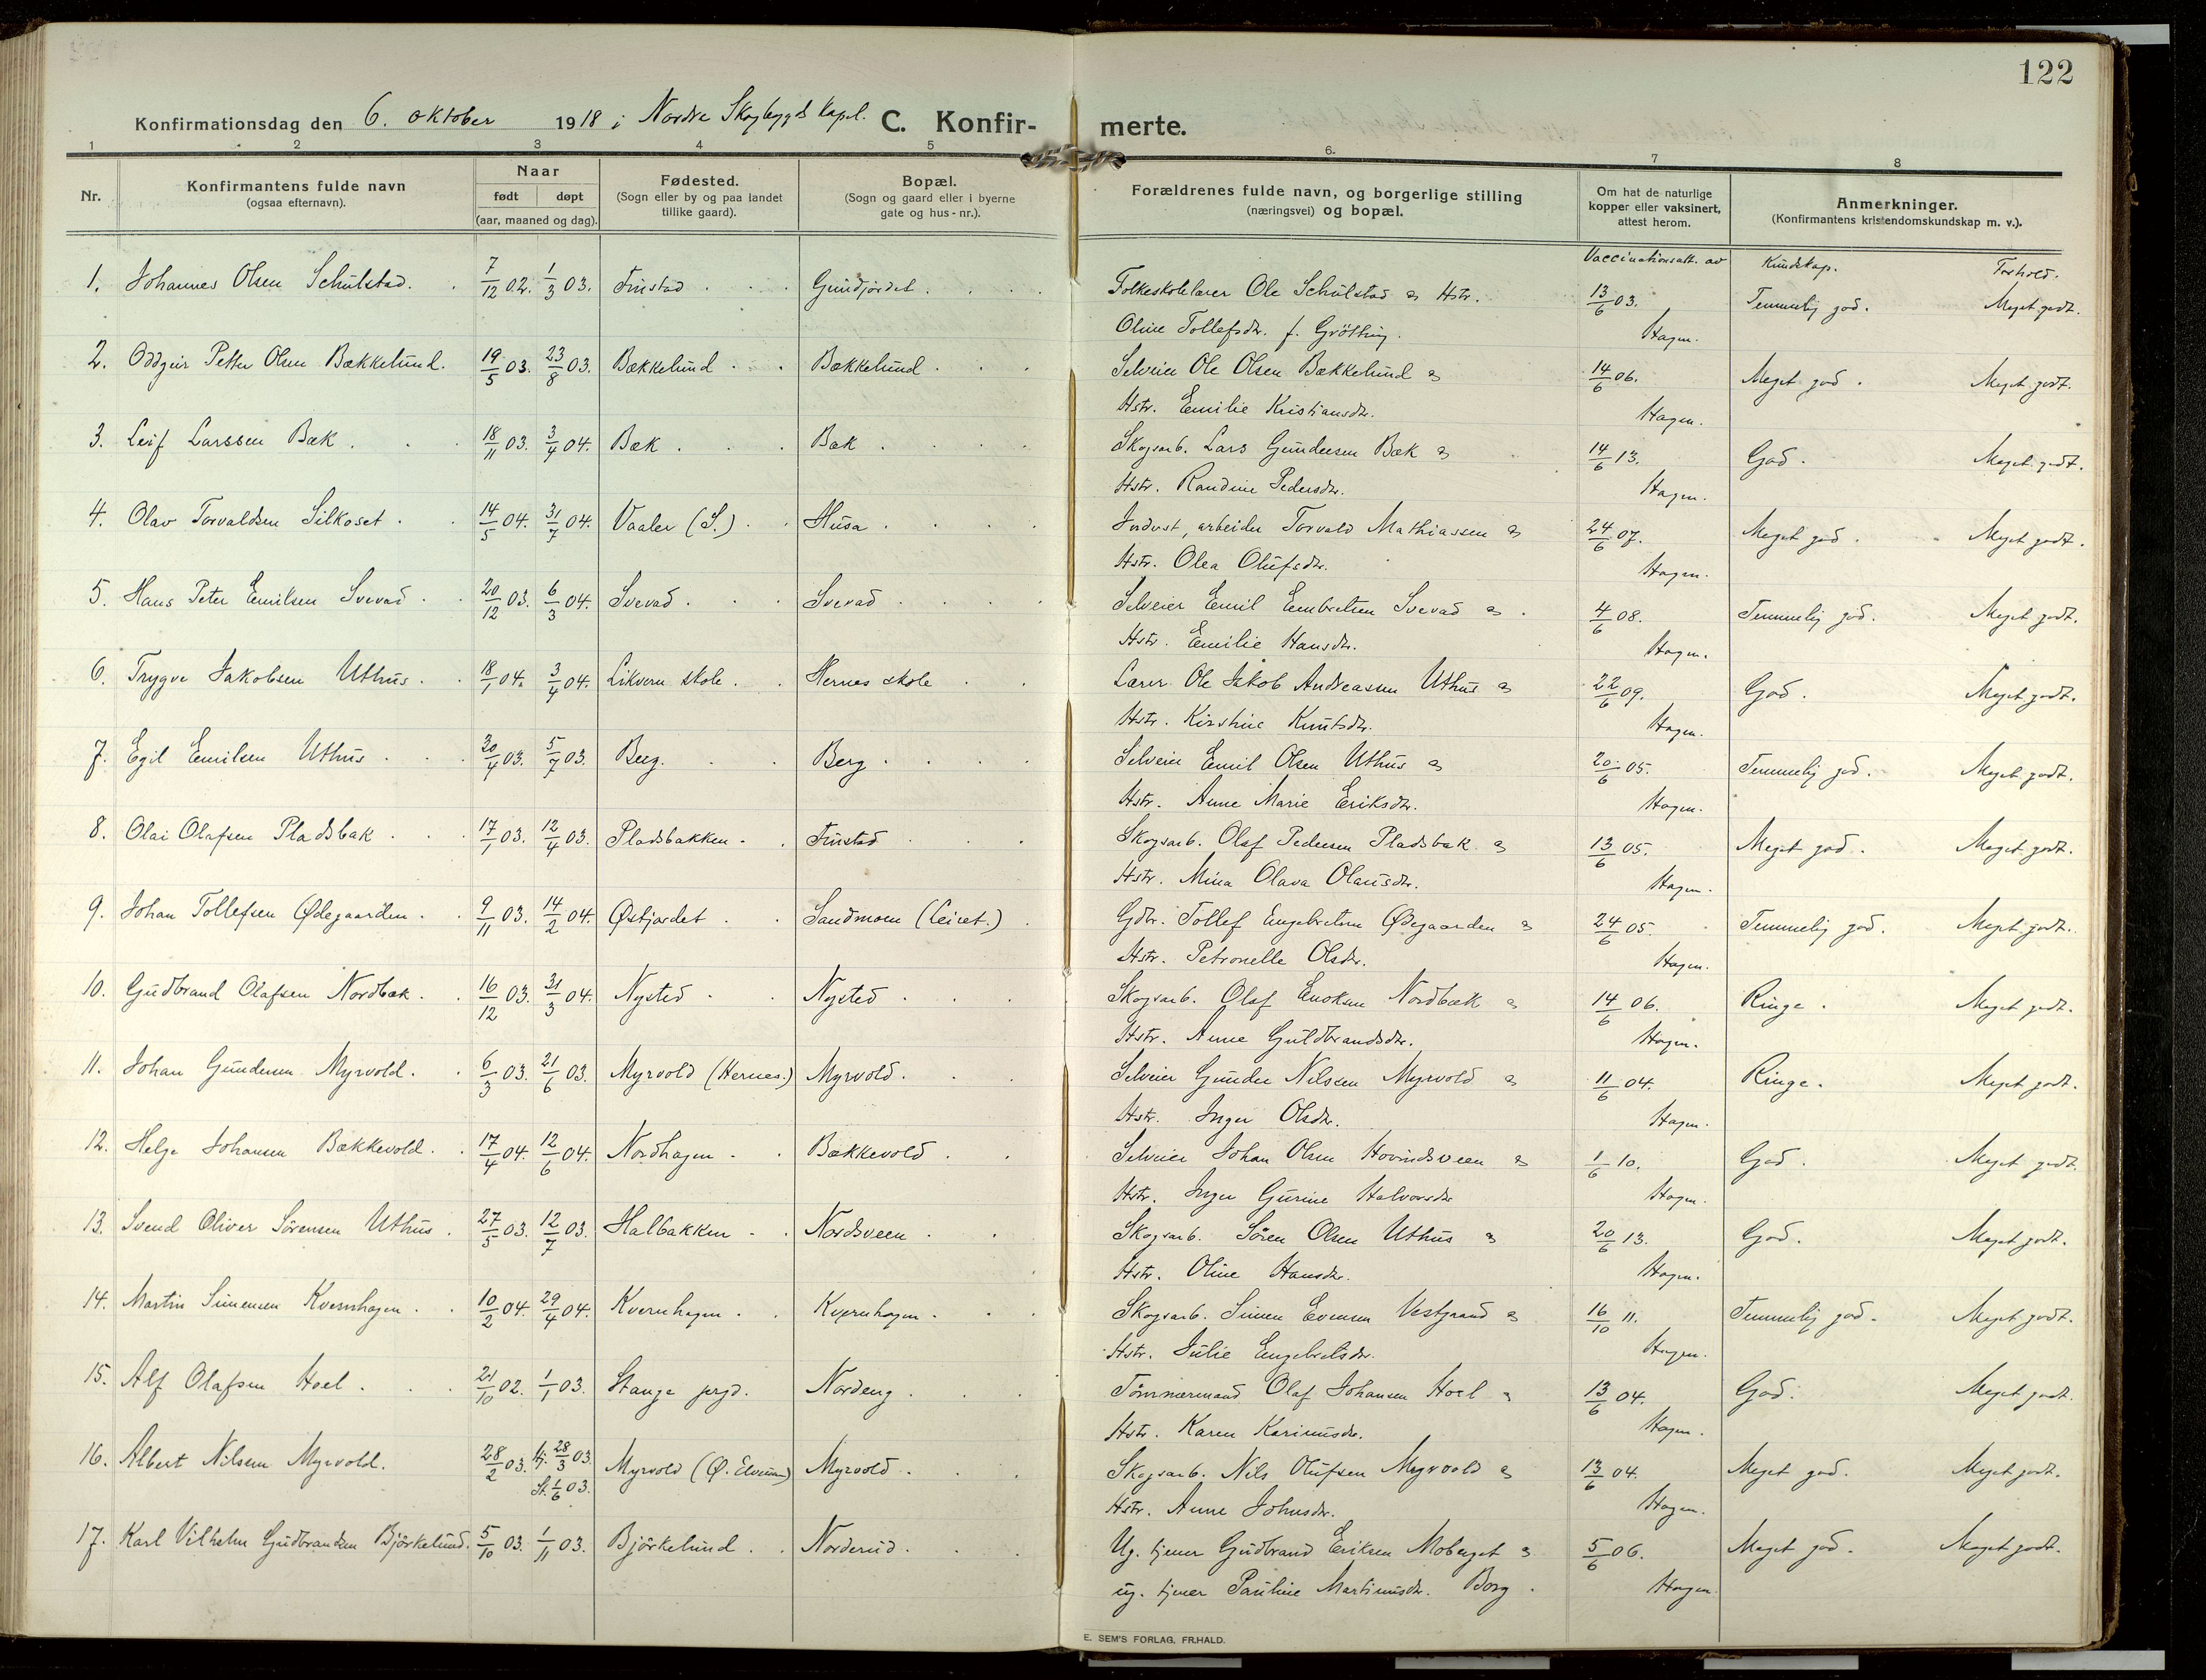 122
Konfirmationsdag den 6. oktober 1918 i Nordre Skogbygds Kapel. C. Konfir- merte.
1 2 3 4 5 6. 7 8
Nr. Konfirmantens fulde navn (ogsaa efternavn). Naar født døpt (aar, maaned og dag). Fødested. (Sogn eller by og paa landet tillike gaard). Bopæl. (Sogn og gaard eller i byerne gate og hus-nr.). Forældrenes fulde navn, og borgerlige stilling (næringsvei) og bopæl. Om hat de naturlige kopper eller vaksinert, attest herom. Anmerkninger. (Konfirmantens kristendomskundskap m. v.).
Vaccinationsatt. av Kundskap. Forhold.
1. Johannes Olsen Schulstad. 7/12 02. 1/3 03. Grundjordet. Folkeskolelærer Ole Schulstad og Hstr. 13/6 03. Temmelig god. Meget godt.
Oline Tollefsdtr. f. Grötting. Hagen.
2. Oddgeir Petter Olsen Bækkelund. 19/5 03. 23/8 03. Bækkelund Bækkelund Selveier Ole Olsen Bækkelund og 14/6 06. Meget god. Meget godt.
Hstr. Emilie Kristiansdtr. Hagen.
3. Leif Larssen Bæk. 18/11 03. 3/4 04. Bæk Bæk Skogsarb. Lars Gundersen Bæk og 14/6 13. God. Meget godt.
Hstr. Randine Pedersdtr. Hagen.
4. Olav Torvaldsen Silkoset 14/5 04. 31/7 04. Vaaler (S.) Husa Indust. arbeider Torvald Mathiassen og 24/6 07. Meget god. Meget godt.
Hstr. Olea Olufsdtr. Hagen.
5. Hans Peter Emilsen Svevad 20/12 03. 6/3 04. Svevad Svevad Selveier Emil Embretsen Svevad og 4/6 08. Temmelig god. Meget godt.
Hstr. Emilie Hansdtr. Hagen.
6. Trygve Jakobsen Uthus. 18/1 04. 3/4 04. Likvern skole Hernes skole Lærer Ole Jakob Andreassen Uthus og 22/6 09. God. Meget godt.
Hstr. Kirstine Knutsdtr. Hagen.
7. Egil Emilsen Uthus 30/4 03. 5/7 03. Berg. Berg Selveier Emil Olsen Uthus og 20/6 05. Temmelig god. Meget godt.
Hstr. Anne Marie Eriksdtr. Hagen.
8. Olai Olafsen Pladsbak 17/1 03. 12/4 03. Pladsbakken Skogsarb. Olaf Pedersen Pladsbak og 13/6 05. Meget god. Meget godt.
Hstr. Mina Olava Olausdtr. Hagen.
9. Johan Tollefsen Ødegaarden 9/11 03. 14/2 04. Østjordet Sandmoen (Leiret.) Gdbr. Tollef Engebretsen Ødegaarden og 24/6 05. Temmelig god. Meget godt.
Hstr. Petronelle Olsdtr. Hagen.
10. Gudbrand Olafsen Nordbæk. 16/12 03. 31/3 04. Nysted Nysted Skogsarb. Olaf Enoksen Nordbæk og 14/6 06. Ringe. Meget godt.
Hstr. Anne Guldbrandsdtr. Hagen.
11. Johan Gundersen Myrvold. 6/3 03. 21/6 03. Myrvold (Hernes.) Myrvold. Selveier Gunder Nilssen Myrvold og 11/6 04. Ringe. Meget godt.
Hstr. Inger Olsdtr. Hagen.
12. Helge Johansen Bækkevold. 17/4 04. 12/6 04. Nordhagen Bækkevold Selveier Johan Olsen Hovindsveen og 1/6 10. God. Meget godt.
Hstr. Inger Gurine Halvorsdtr. Hagen.
13. Svend Oliver Sörensen Uthus 27/5 03. 12/7 03. Halbakken Nordsveen Skogsarb. Sören Olsen Uthus og 20/6 13. God. Meget godt.
Hstr. Oline Hansdtr. Hagen.
14. Martin Simensen Kvernhagen 10/2 04. 29/4 04. Kvernhagen Kvernhagen Skogsarb. Simen Evensen Vestgaard og 16/10 11. Temmelig god. Meget godt.
Hstr. Julie Engebretsdtr. Hagen.
15. Alf Olafsen Hoel 21/10 02. 1/1 03. Stange prgd. Nordeng Tömmermand Olaf Johansen Hoel og 13/6 04. God. Meget godt.
Hstr. Karen Karinusdtr. Hagen.
16. Albert Nilsen Myrvold. 28/2 03. Hj. 28/3 03. St. 1/6 03. Myrvold (Ø. Elverum) Myrvold Skogsarb. Nils Olufsen Myrvold og 13/6 04. Meget god. Meget godt.
Hstr. Anne Johnsdtr. Hagen.
17. Karl Vilhelm Gudbrandsen Björkelund. 5/10 03. 1/11 03. Björkelund Norderud Ug. tjener Gudbrand Eriksen Moberget og 5/6 06. Meget god. Meget godt.
ug. tjener Pauline Martinusdtr. Borg. Hagen.
E. SEM'S FORLAG, FR.HALD.